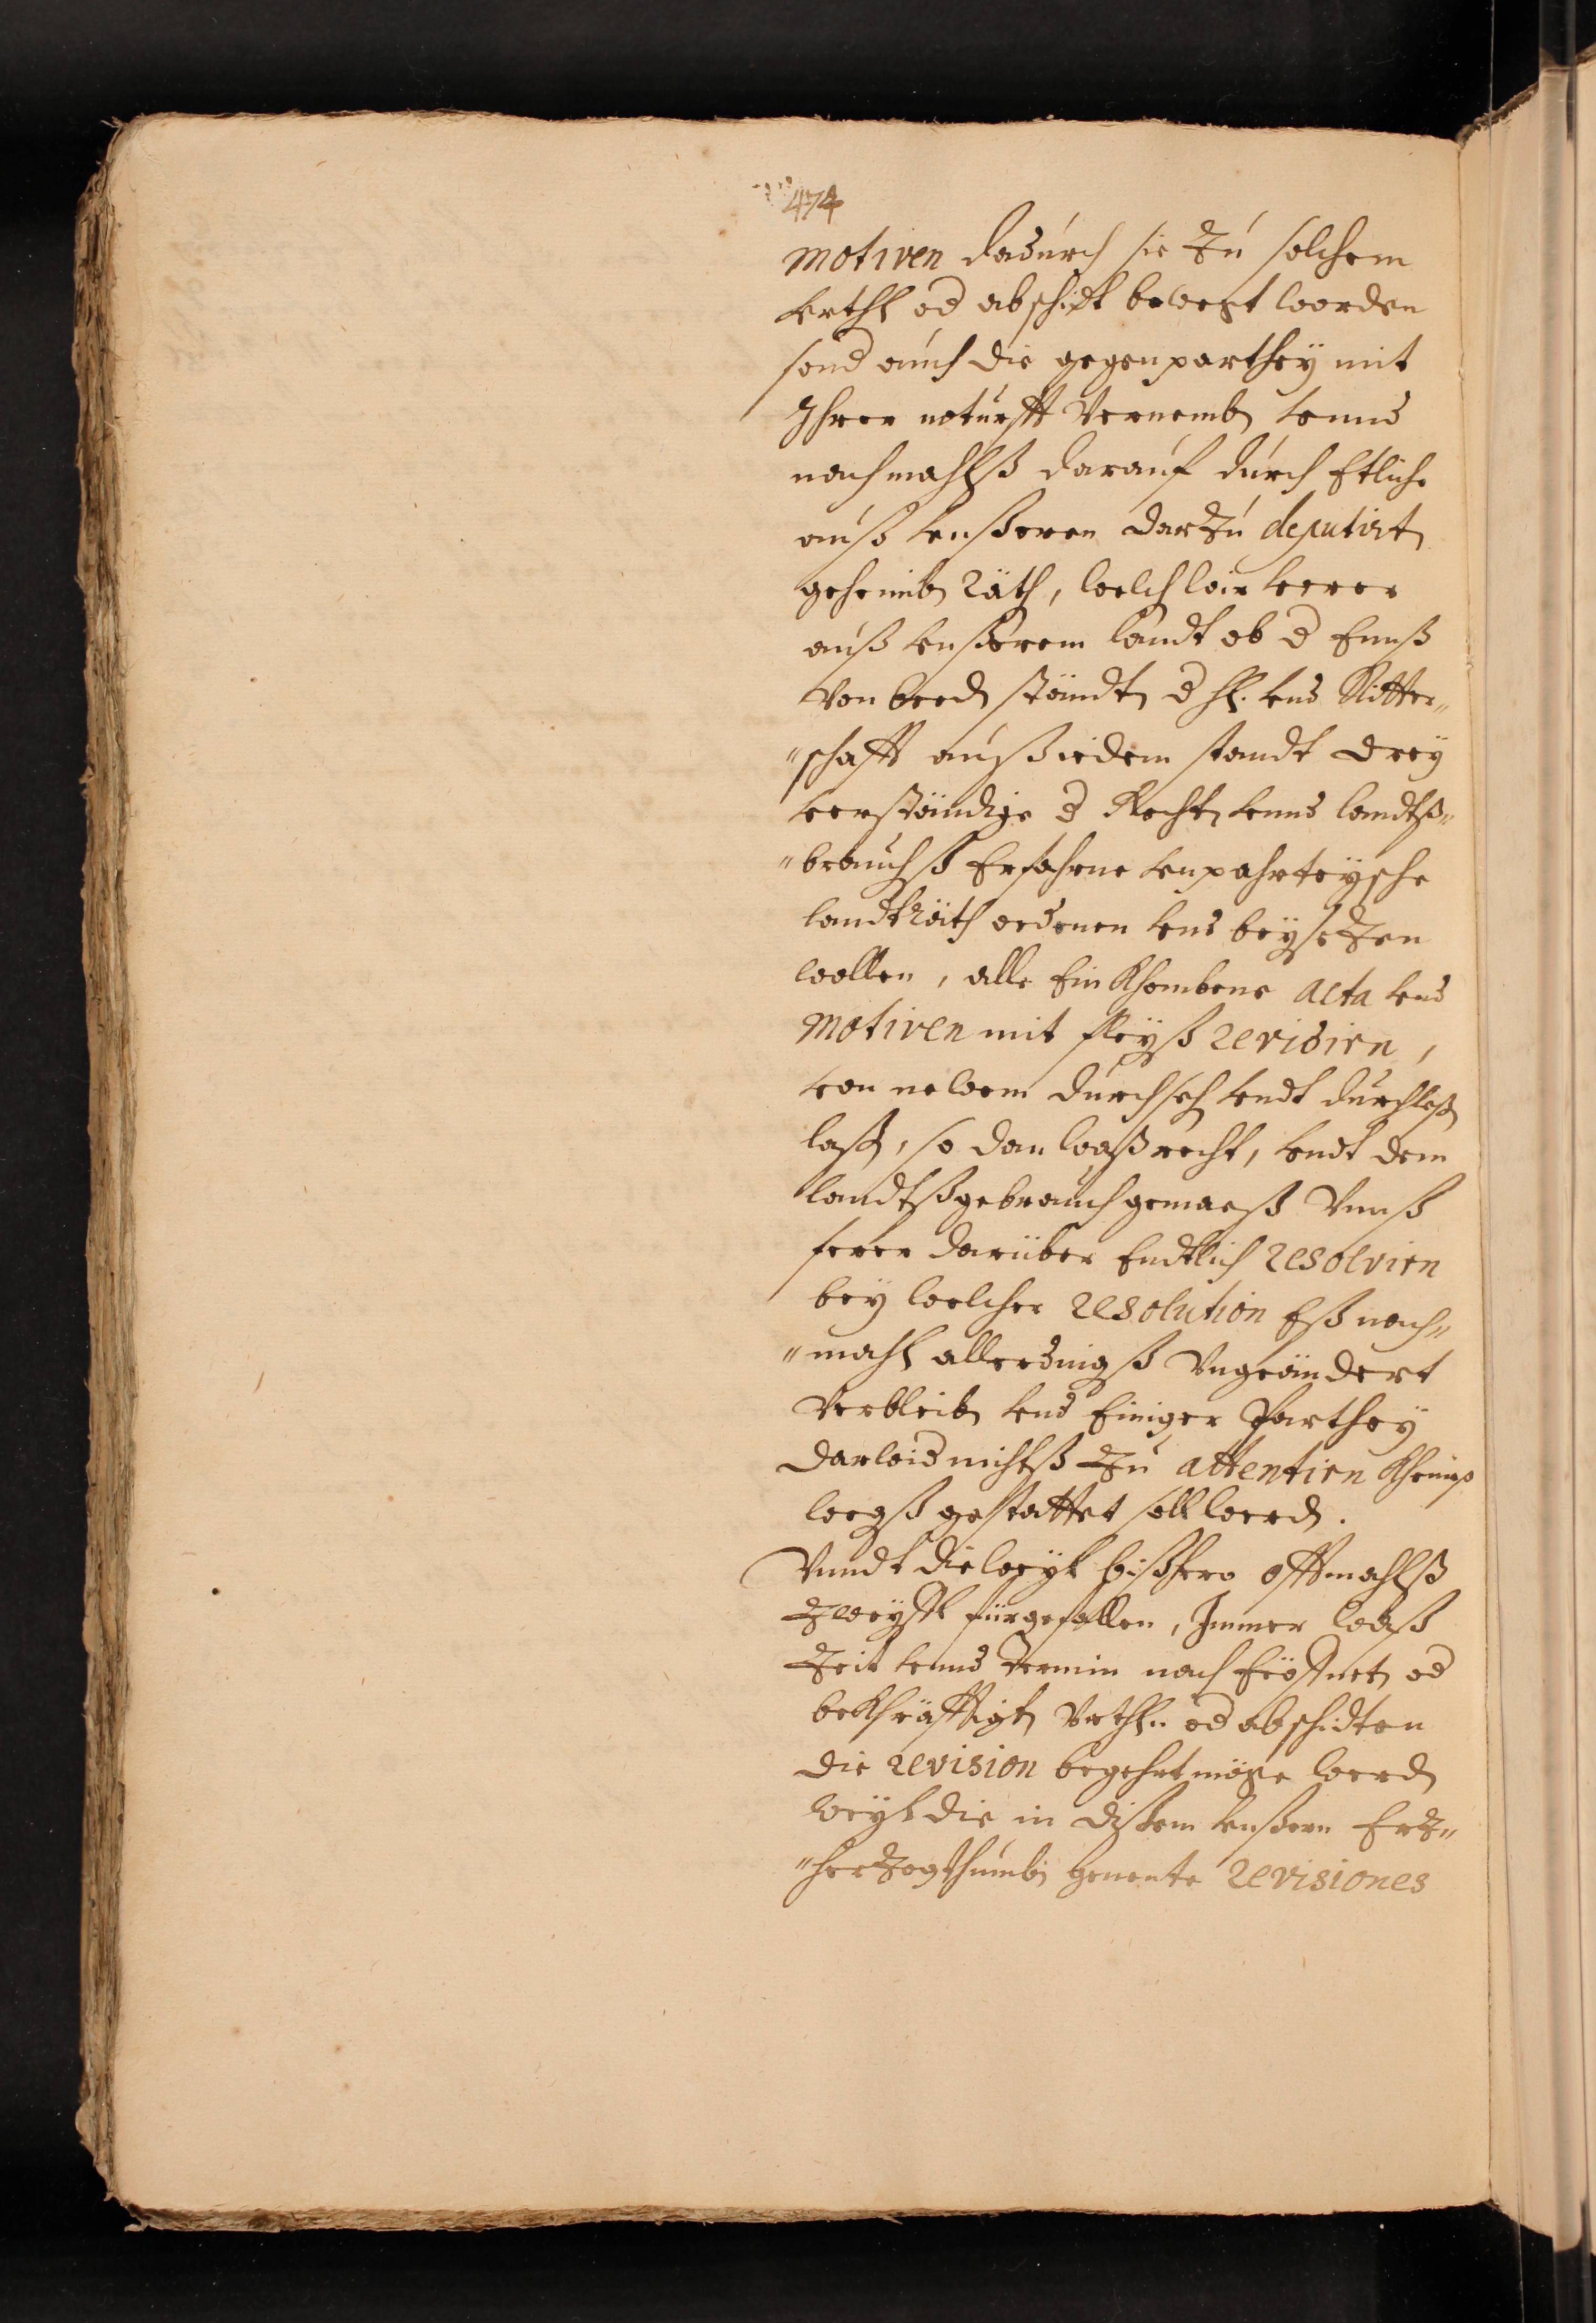 474
motiven dadurch sie zu solchem
vrthl od abschidt bewegt worden
sond auch die gegenparthey mit
Ihrer noturfft Vernemben vnnd
nachmahlß darauf durch Etliche
auß vnßeren darzu deputirt
geheimb Räth, welch wir
auß vnßerem landt ob d Ennß
Von beed ständt d hl. vnd Ritter„
„schafft auß iedem standt drey
verständige d Recht vnnd landtß„
„brauchß Erfahrne vnpahrteysche
landträth ordenen vnd beysezen
wollen, alle Einkhombene acta vnd
motiven mit fleyß revidirn,
von newem durchseh vndt durchleß
laß, so dan waß recht, vndt dem
landtßgebrauch gemaeß Vnnß
ferer darüber Endtlich resolvirn
bey welcher resolution Eß nach„
„mahl allerdingß Vngeändert
Verbleib vnd Einiger Parthey
darwid nichtß zu attentirn kheineß
weegß gestattet soll werd.
Vnndt die weyl bißhero offtmahlß
zweyfl fürgefallen, Inner waß
Zeit vnnd Termin nach Eröffnet od
bekhräfftigt Vrthl. od abschidten
die revision begehrt möge werd
weyl die in dißem vnßern Erz„
„herzogthumb genente revisiones